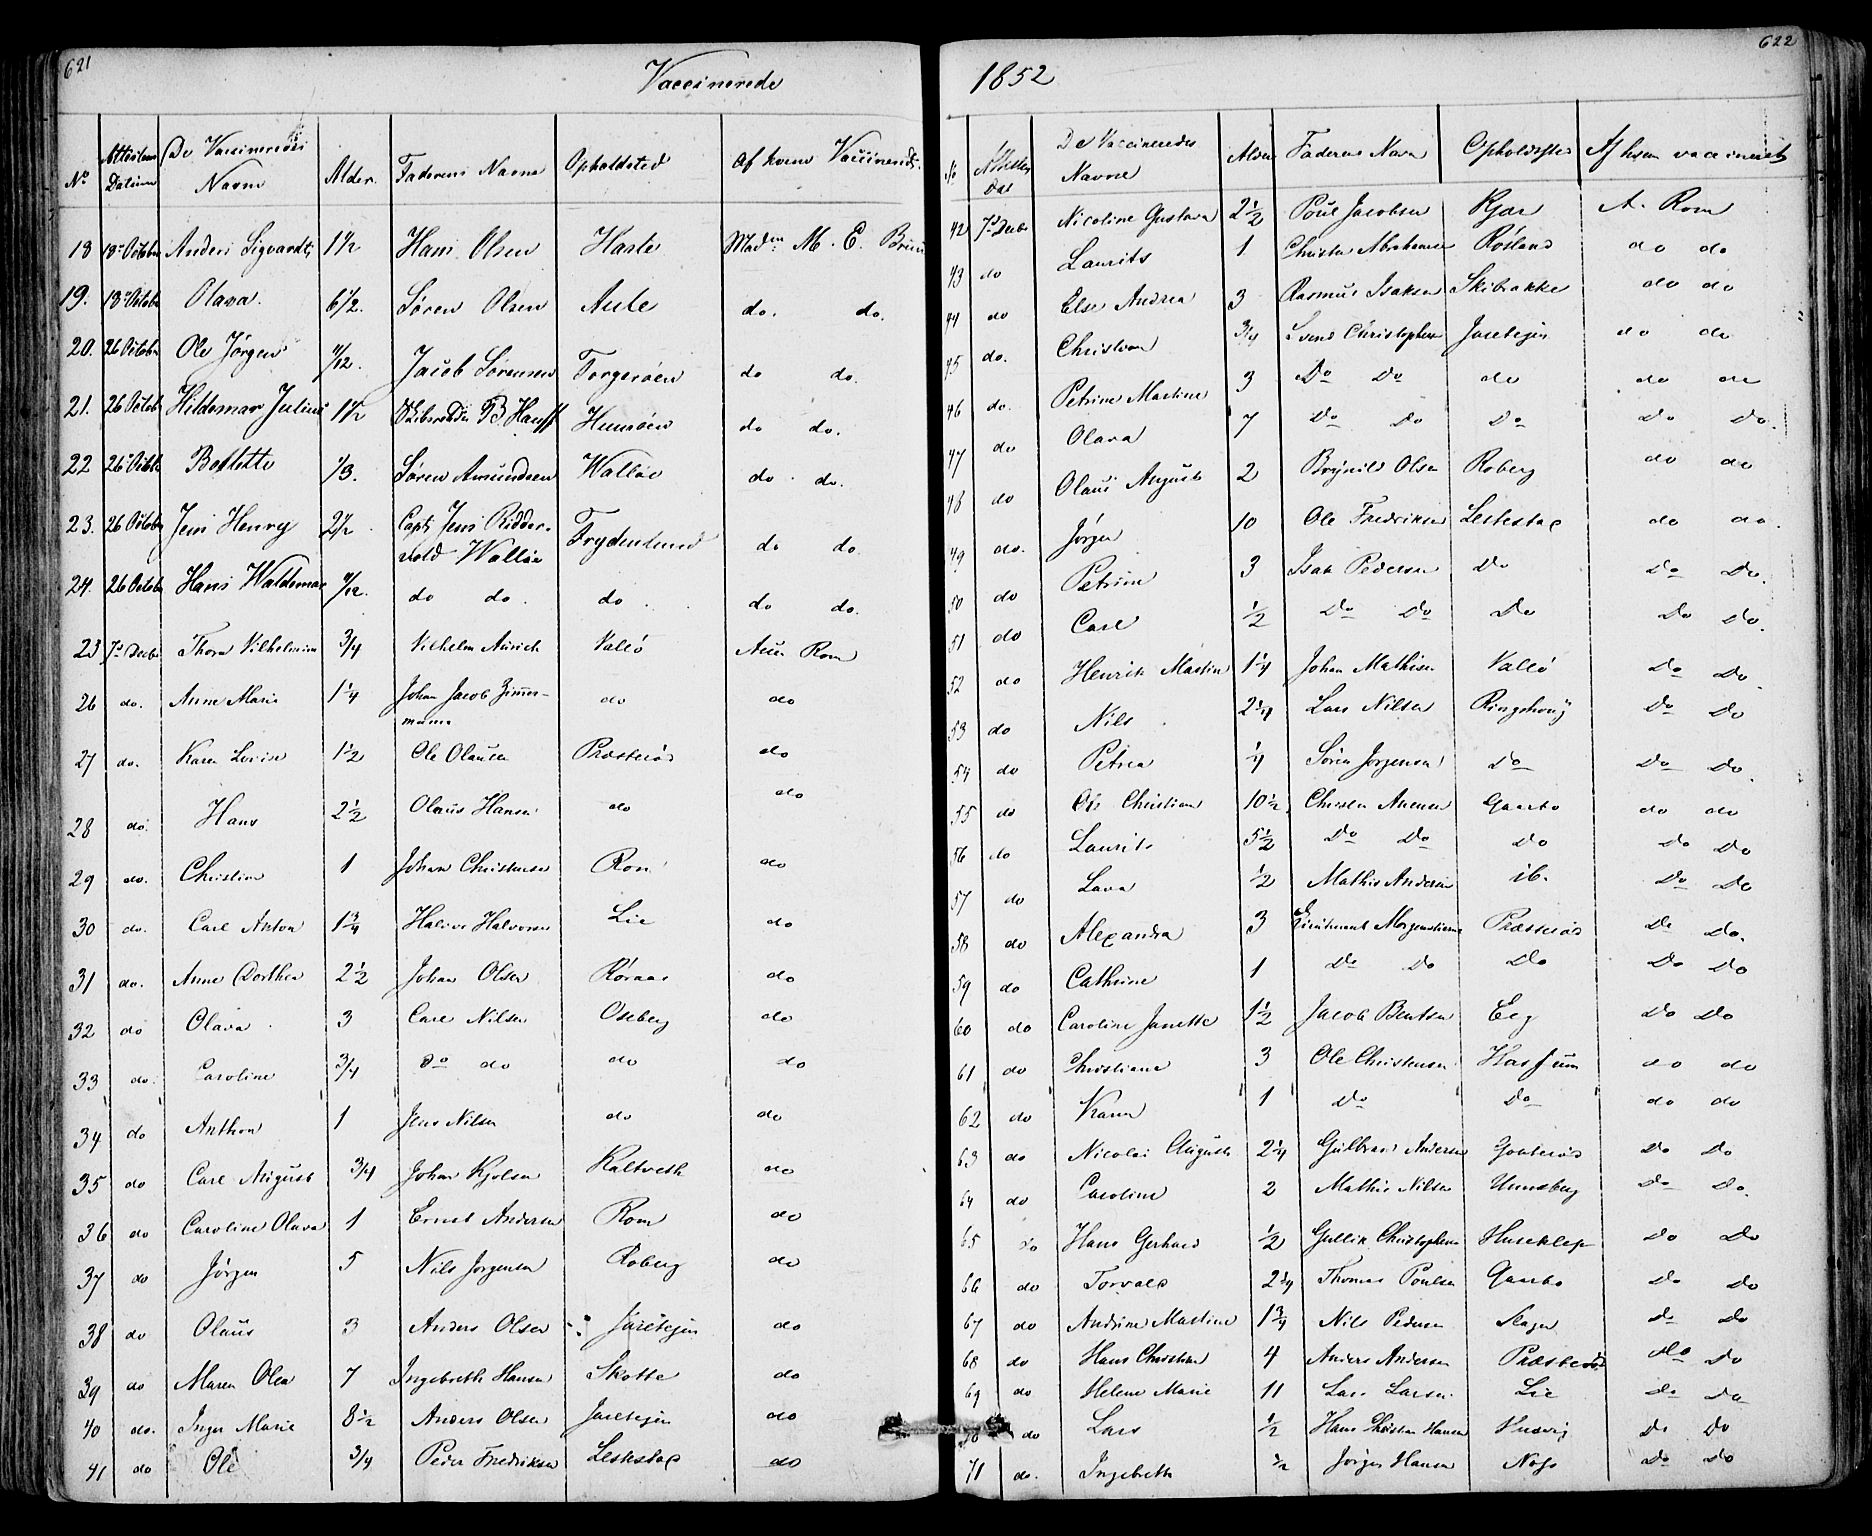 621
Vaccinerede
No Attestens Datum De Vaccineredes Navne Alder. Faderens Navne Opholdsted Af hvem Vaccinerede.
18 18 October Anders Sigvardt 1 1/2 Hans Olsen Hasle Madm M. E. Bruu
19. 18 Octobr Olava. 6 1/2. Søren Olsen Aule do. do.
20. 26 Octobr Ole Jørgen 4/12. Jacob Sørensen Torgersøen do do.
21. 26 Octobr Hildemar Julius 1 1/2 B. Hauff Husøen do do.
22 26 Octbr Bollette 1/3. Søren Amundsen Walløe do. do.
23. 26 Octobr Jens Henry 2 1/2 Capt. Jens Ridder-
vold Walløe Frydenlund do do.
24. 26 Octobr Hans Waldemar 4/12. do do. do. do do.
25 7d Decbr Thora Vilhelmine 3/4 Vilhelm Aurich Vallö Aun Rom
26 do. Anne Marie 1 1/4 Johan Jacob Zimmer-
mann do do
27 do. Karen Lovise 1 1/2 Ole Olausen Præsterød do
28 do. Hans 2 1/2 Olaus Hansen do do
29 do. Christine 1 Johan Christensen Rom do
30 do. Carl Anton 1 3/4 Halvor Halvorsen Lie do
31 do. Anne Dorthea 2 1/2 Johan Olsen Röraas do
32 do Olava 3 Carl Nilsen Oseberg do
33 do. Caroline 3/4 Do do do do
34 do Anthon 1 Jens Nilsen do do
35 do Carl August 3/4 Johan Kjølsen Kaltveth do
36 do Caroline Olava 1 Ernst Andersen Rom do
37 do Jörgen 5 Nils Jorgensen Roberg do
38 do Olaus 3 Anders Olsen Jaretejen do
39 do Maren Olea 7 Ingebreth Hansen Skotte do
40 do. Inger Marie 8 1/2 Anders Olsen Jaretejen do
41 do Ole 3/4 Peder Fredriksen Lestestad do
622
1852
No Attestens Dat De Vaccineredes Navne Alder Faderens Navn Opholdssted Af hvem vaccineret
42 7d Decbr Nicoline Gustava 2 1/2 Poul Jacobsen Kjær A. Rom
43 do Laurits 1 Christen Abrahamsen Rösland do do
44 do Else Andrea 3 Rasmus Isaksen Skibrakke do do
45 do. Christian 3/4 Svend Christophersen Jaretejen do do
46 do. Petrine Martine 3 Do Do do do do
47 do Olava 7 Do Do Do Do Do.
48 do Olaus August 2 Brynild Olsen Roberg do do
49 do. Jörgen 10 Ole Fredriksen Lestestad do do.
50 do Petrine 3 Isak Pedersen Do Do Do.
51 do Carl 1/2 Do Do Do Do Do.
52 do Henrik Martin 1 1/4 Johan Mathisen Vallö Do Do.
53 do Nils 2 1/4 Lars Nilsen Ringshoug Do Do
54 do Petrea 1/4 Sören Jorgensen Do Do Do.
55 do Ole Christian 10 1/2 Christen Anensen Gaarbo do do
56 do Laurits 5 1/2 Do Do Do Do Do
57 do Lava 1/2 Mathis Andersen ib. Do Do
58 do Alexandra 3 Lieutenant Morgenstierne Præsterød Do Do.
59 do Cathrine 1 Do Do Do Do Do
60 do Caroline Janette 1 1/2 Jacob Bentsen Eeg Do Do
61 do Christiane 3 Ole Christensen Hassum do do
62 do Karen 1 Do Do do do
63 do Nicolai August 2 1/4 Gulbrand Andersen Gonterød Do Do
64 do Caroline 2 Mathis Nilsen Unneberg Do Do.
65 do Hans Gerhard 1/2 Gullik Christophersen Huseklep Do Do
66 do Torvald 2 1/4 Thomas Poulsen Gaarbo Do Do
67 do Andrine Martine 1 3/4 Nils Pedersen Slagen Do Do
68 do Hans Christian 4 Anders Andersen Præsterød Do Do
69 do Helene Marie 11 Lars Larsen Lie Do Do
70 do Lars 1/2 Hans Christian Hansen Hudvig Do Do
71 do. Ingebreth 1/2 Jörgen Hansen Nøss Do Do